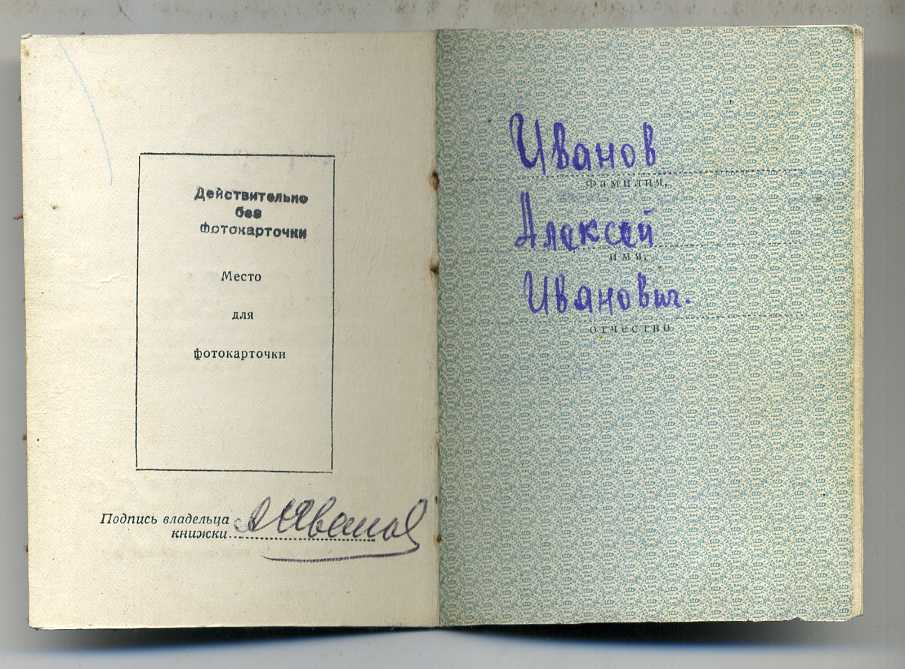 Действительно
без
фотокарточки
Место
для
фотокарточки
Подпись владельца
книжки
АИванов
Иванов
фамилия,
Алексей
имя,
Иванович.
отчество